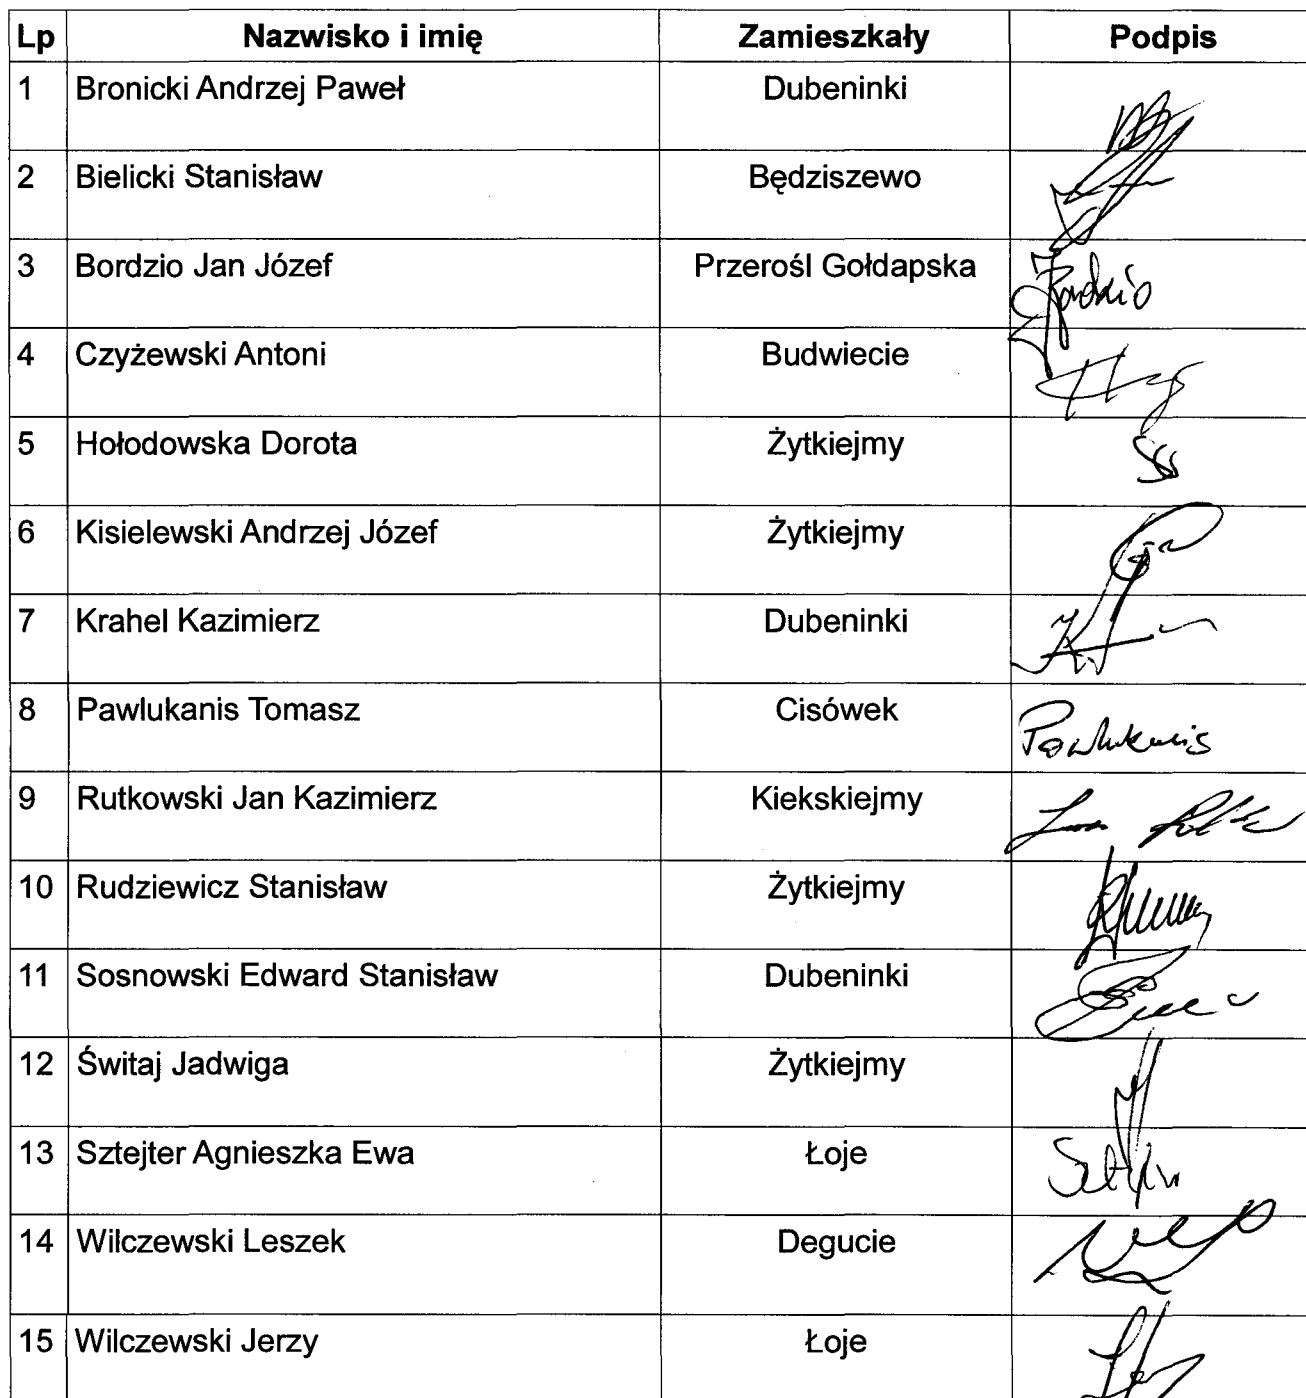 Lp Nazwisko i imię Zamieszkały Podpis
1 Bronicki Andrzej Paweł Dubeninki
2 Bielicki Stanisław Będziszewo
3 Bordzio Jan Józef Przerośl Gołdapska Bordzio
4 Czyżewski Antoni Budwiecie
5 Hołodowska Dorota Żytkiejmy
6 Kisielewski Andrzej Józef Żytkiejmy
7 Krahel Kazimierz Dubeninki
8 Pawlukanis Tomasz Cisówek Pawlukanis
9 Rutkowski Jan Kazimierz Kiekskiejmy
10 Rudziewicz Stanisław Żytkiejmy
11 Sosnowski Edward Stanisław Dubeninki
12 Świtaj Jadwiga Żytkiejmy
13 Sztejter Agnieszka Ewa Łoje
14 Wilczewski Leszek Degucie
15 Wilczewski Jerzy Łoje